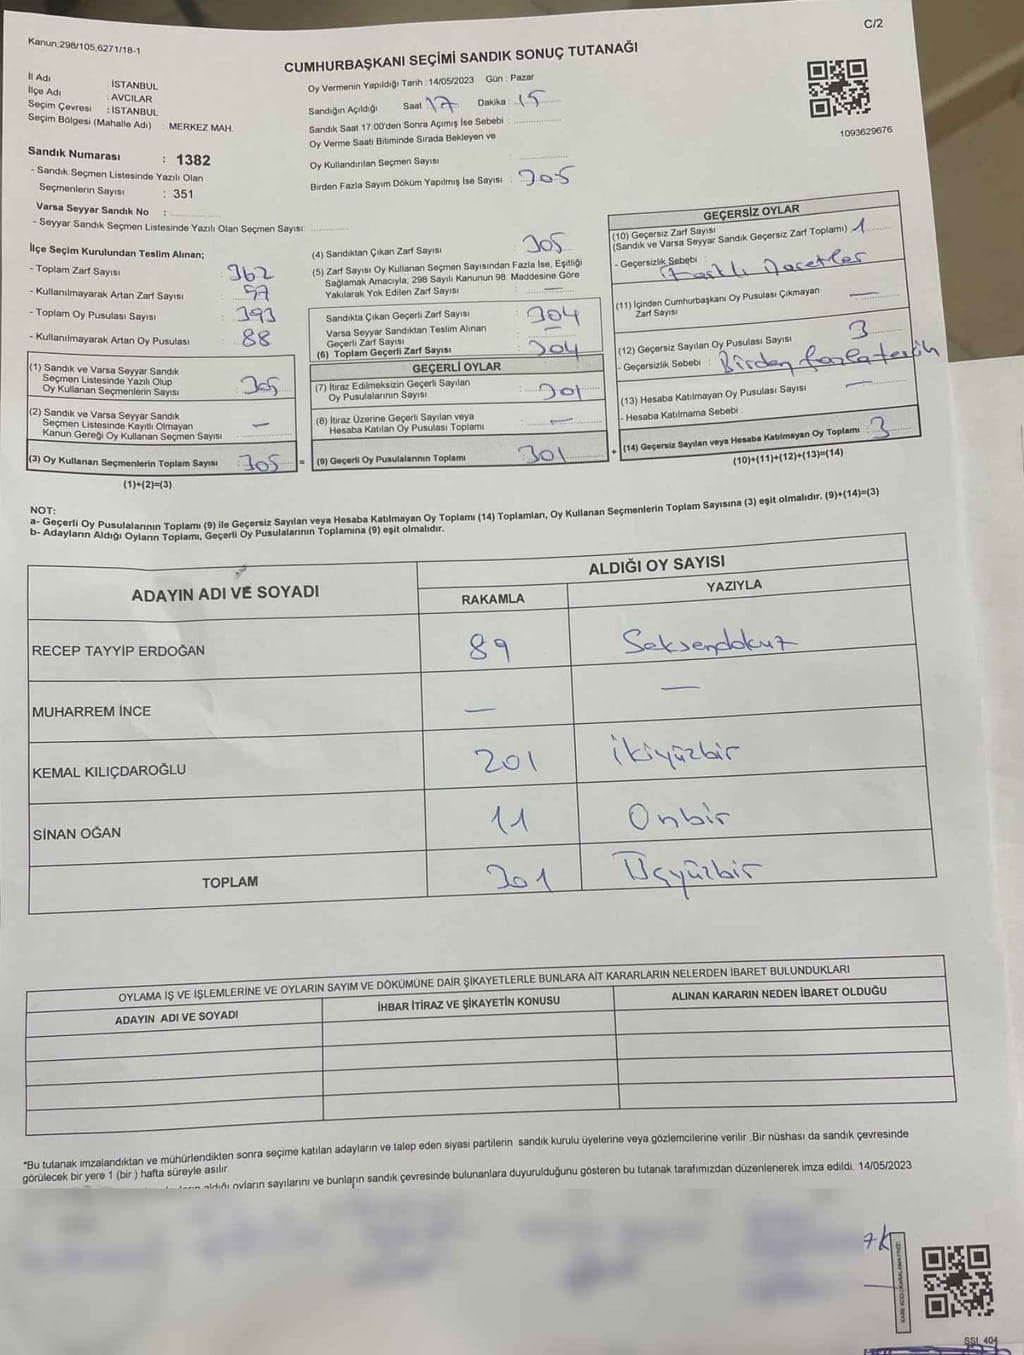 C/2
Kanun;298/105,6271/18-1
CUMHURBAŞKANI SEÇİMİ SANDIK SONUÇ TUTANAĞI
İl Adı : İSTANBUL
İlçe Adı : AVCILAR
Seçim Çevresi : İSTANBUL
Seçim Bölgesi (Mahalle Adı) : MERKEZ MAH.
Sandık Numarası : 1382
- Sandık Seçmen Listesinde Yazılı Olan
Seçmenlerin Sayısı : 351
Varsa Seyyar Sandık No :
- Seyyar Sandık Seçmen Listesinde Yazılı Olan Seçmen Sayısı:
Oy Vermenin Yapıldığı Tarih :14/05/2023 Gün : Pazar
Sandığın Açıldığı Saat : 17 Dakika : 15
Sandık Saat 17:00'den Sonra Açımış İse Sebebi :
Oy Verme Saati Bitiminde Sırada Bekleyen ve
Oy Kullandırılan Seçmen Sayısı :
Birden Fazla Sayım Döküm Yapılmış İse Sayısı : 305
1093629676
İlçe Seçim Kurulundan Teslim Alınan;
- Toplam Zarf Sayısı : 362
- Kullanılmayarak Artan Zarf Sayısı : 57
- Toplam Oy Pusulası Sayısı : 393
- Kullanılmayarak Artan Oy Pusulası : 88
(1) Sandık ve Varsa Seyyar Sandık
Seçmen Listesinde Yazılı Olup
Oy Kullanan Seçmenlerin Sayısı : 305
(2) Sandık ve Varsa Seyyar Sandık
Seçmen Listesinde Kayıtlı Olmayan
Kanun Gereği Oy Kullanan Seçmen Sayısı : —
(3) Oy Kullanan Seçmenlerin Toplam Sayısı : 305
(1)+(2)=(3)
(4) Sandıktan Çıkan Zarf Sayısı : 305
(5) Zarf Sayısı Oy Kullanan Seçmen Sayısından Fazla İse, Eşitliği
Sağlamak Amacıyla, 298 Sayılı Kanunun 98. Maddesine Göre
Yakılarak Yok Edilen Zarf Sayısı : —
Sandıkta Çıkan Geçerli Zarf Sayısı : 304
Varsa Seyyar Sandıktan Teslim Alınan
Geçerli Zarf Sayısı : —
(6) Toplam Geçerli Zarf Sayısı : 304
GEÇERLİ OYLAR
(7) İtiraz Edilmeksizin Geçerli Sayılan
Oy Pusulalarının Sayısı : 301
(8) İtiraz Üzerine Geçerli Sayılan veya
Hesaba Katılan Oy Pusulası Toplamı : —
= (9) Geçerli Oy Pusulalarının Toplamı : 301
GEÇERSİZ OYLAR
(10) Geçersiz Zarf Sayısı
(Sandık ve Varsa Seyyar Sandık Geçersiz Zarf Toplamı) : 1
- Geçersizlik Sebebi : Farklı İşaretler
(11) İçinden Cumhurbaşkanı Oy Pusulası Çıkmayan
Zarf Sayısı : —
(12) Geçersiz Sayılan Oy Pusulası Sayısı : 3
- Geçersizlik Sebebi : Birden fazla tercih
(13) Hesaba Katılmayan Oy Pusulası Sayısı : —
- Hesaba Katılmama Sebebi :
+ (14) Geçersiz Sayılan veya Hesaba Katılmayan Oy Toplamı : 3
(10)+(11)+(12)+(13)=(14)
NOT:
a- Geçerli Oy Pusulalarının Toplamı (9) ile Geçersiz Sayılan veya Hesaba Katılmayan Oy Toplamı (14) Toplamları, Oy Kullanan Seçmenlerin Toplam Sayısına (3) eşit olmalıdır. (9)+(14)=(3)
b- Adayların Aldığı Oyların Toplamı, Geçerli Oy Pusulalarının Toplamına (9) eşit olmalıdır.
ADAYIN ADI VE SOYADI
ALDIĞI OY SAYISI
RAKAMLA YAZIYLA
RECEP TAYYİP ERDOĞAN 89 Seksendokuz
MUHARREM İNCE — —
KEMAL KILIÇDAROĞLU 201 İkiyüzbir
SİNAN OĞAN 11 Onbir
TOPLAM 301 Üçyüzbir
OYLAMA İŞ VE İŞLEMLERİNE VE OYLARIN SAYIM VE DÖKÜMÜNE DAİR ŞİKAYETLERLE BUNLARA AİT KARARLARIN NELERDEN İBARET BULUNDUKLARI
ADAYIN ADI VE SOYADI İHBAR İTİRAZ VE ŞİKAYETİN KONUSU ALINAN KARARIN NEDEN İBARET OLDUĞU
*Bu tutanak imzalandıktan ve mühürlendikten sonra seçime katılan adayların ve talep eden siyasi partilerin sandık kurulu üyelerine veya gözlemcilerine verilir .Bir nüshası da sandık çevresinde
görülecek bir yere 1 (bir ) hafta süreyle asılır.
aldığı oyların sayılarını ve bunların sandık çevresinde bulunanlara duyurulduğunu gösteren bu tutanak tarafımızdan düzenlenerek imza edildi. 14/05/2023
SSI_404